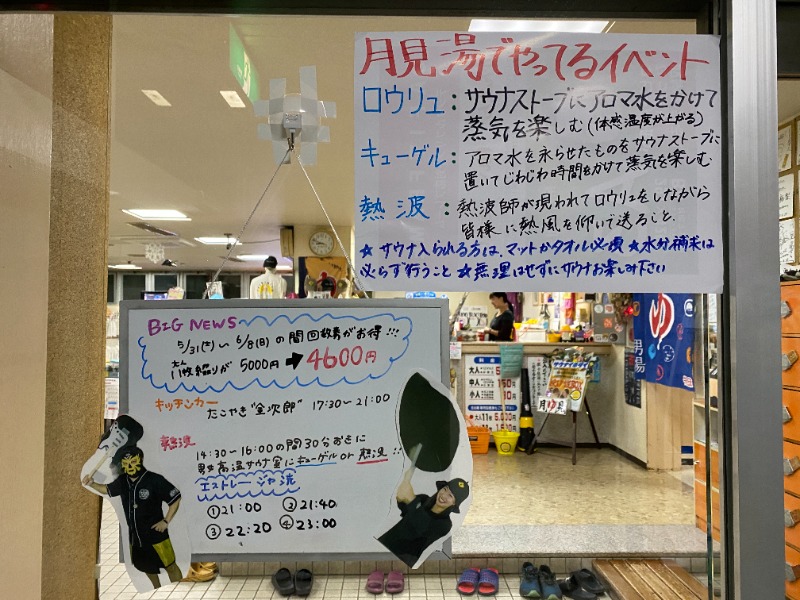 月見湯でやってるイベント
ロウリュ：サウナストーブにアロマ水をかけて
蒸気を楽しむ(体感温度が上がる)
キューゲル：アロマ水を氷らせたものをサウナストーブに
置いてじわじわ時間をかけて蒸気を楽しむ
熱波：熱波師が現われてロウリュをしながら
皆様に熱風を仰いで送ること.
☆サウナ入られる方は、マットかタオル必須☆水分補末は
必らず行うこと☆無理はせずにサウナお楽しみ下さい
BIG NEWS
5/31(土)～6/8(日)の間回数券がお得!!!
大人
11枚綴りが 5000円→4600円
キッチンカー
たこやき"金次郎" 17:30～21:00
熱波
14:30～16:00の間30分おきに
男女高温サウナ室にキューゲル or 熱波!!
エストレージャ流
①21:00 ②21:40
③22:20 ④23:00
ゆ
男湯
料金
大人
中人
小人
大人11枚
月見湯